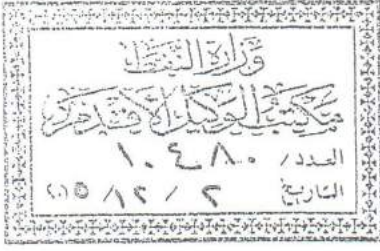 وزارة النفط
مكتب الوكيل الأقدم
العدد / ١٠٤٨٠
التاريخ ٢ / ١٢ / ٢٠١٥